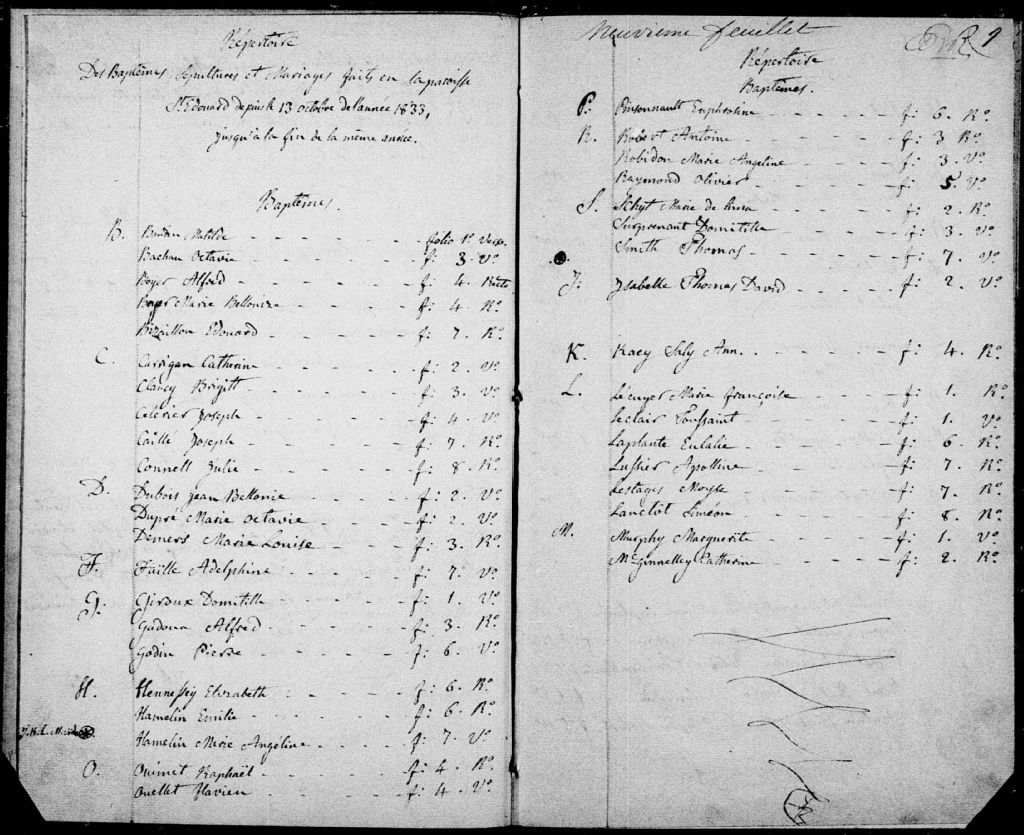 Répertoire
Des Baptêmes, Sepultures et Mariages faits en la paroisse
St. Edouard depuis le 13 octobre de l'année 1833,
jusqu'à la fin de la même année.
Baptêmes.
B. Matilde - - - folio 1o. Verso.
Bachan Octavie - - - f: 3. Vo.
Boyer Alfred - - - f: 4. Recto.
Boyer Marie Bellonize - - - f: 4. Ro.
Bizaillon Edouard - - - f: 7. Ro.
C. Carrigan Catherine - - - f: 2. Vo.
Clancy Brigitt - - - f: 3. Vo.
Celerier Joseph - - - f: 4. Vo.
Caillé Joseph - - - f: 7. Ro.
Connell Julie - - - f: 8. Ro.
D. Dubois Jean Bellonie - - - f: 2. Vo.
Dupré Marie Octavie - - - f: 2. Vo.
Demers Marie Louise - - - f: 3. Ro.
F. Faille Adelphine - - - f: 7. Vo.
G. Giroux Domitille - - - f: 1. Vo.
Gadoua Alfred - - - f: 3. Ro.
Godin Pierre - - - f: 6. Vo.
H. Hennessey Elizabeth - - - f: 6. Ro.
Hamelin Emilie - - - f: 6. Ro.
J.K.L.M.
Hamelin Marie Angéline - - - f: 7. Vo.
O. Ouimet Raphaël - - - f: 4. Ro.
Ouellet Flavien - - - f: 4. Vo.
Neuvieme feuillet 9
Répertoire
Baptêmes.
P. Pinsonnault Euphrosine - - - f: 6. Ro.
R. Robert Antoine - - - f: 3 Ro.
Robidou Marie Angeline - - - f: 3. Vo.
Raymond Olivier - - - f: 5. Vo.
S. Marie de - - - f: 2. Ro.
Surprenant Domitille - - - f: 3. Vo.
Smith Thomas - - - f: 7. Vo.
J: Ysabelle Thomas David - - - f: 2. Vo.
K. Kaey Saly Ann. - - - f: 4. Ro.
L. Lécuyer Marie françoise - - - f: 1. Ro.
Leclair Toussaint - - - f: 1. Vo.
Laplante Eulalie - - - f: 6. Ro.
Lussier Apolline - - - f: 7. Ro.
Lestages Moyse - - - f: 7. Ro.
Lanctot Siméon - - - f: 8. Ro.
M. Murphy Marguerite - - - f: 1. Vo.
McGinnelley Catherine - - - f: 2. Ro.